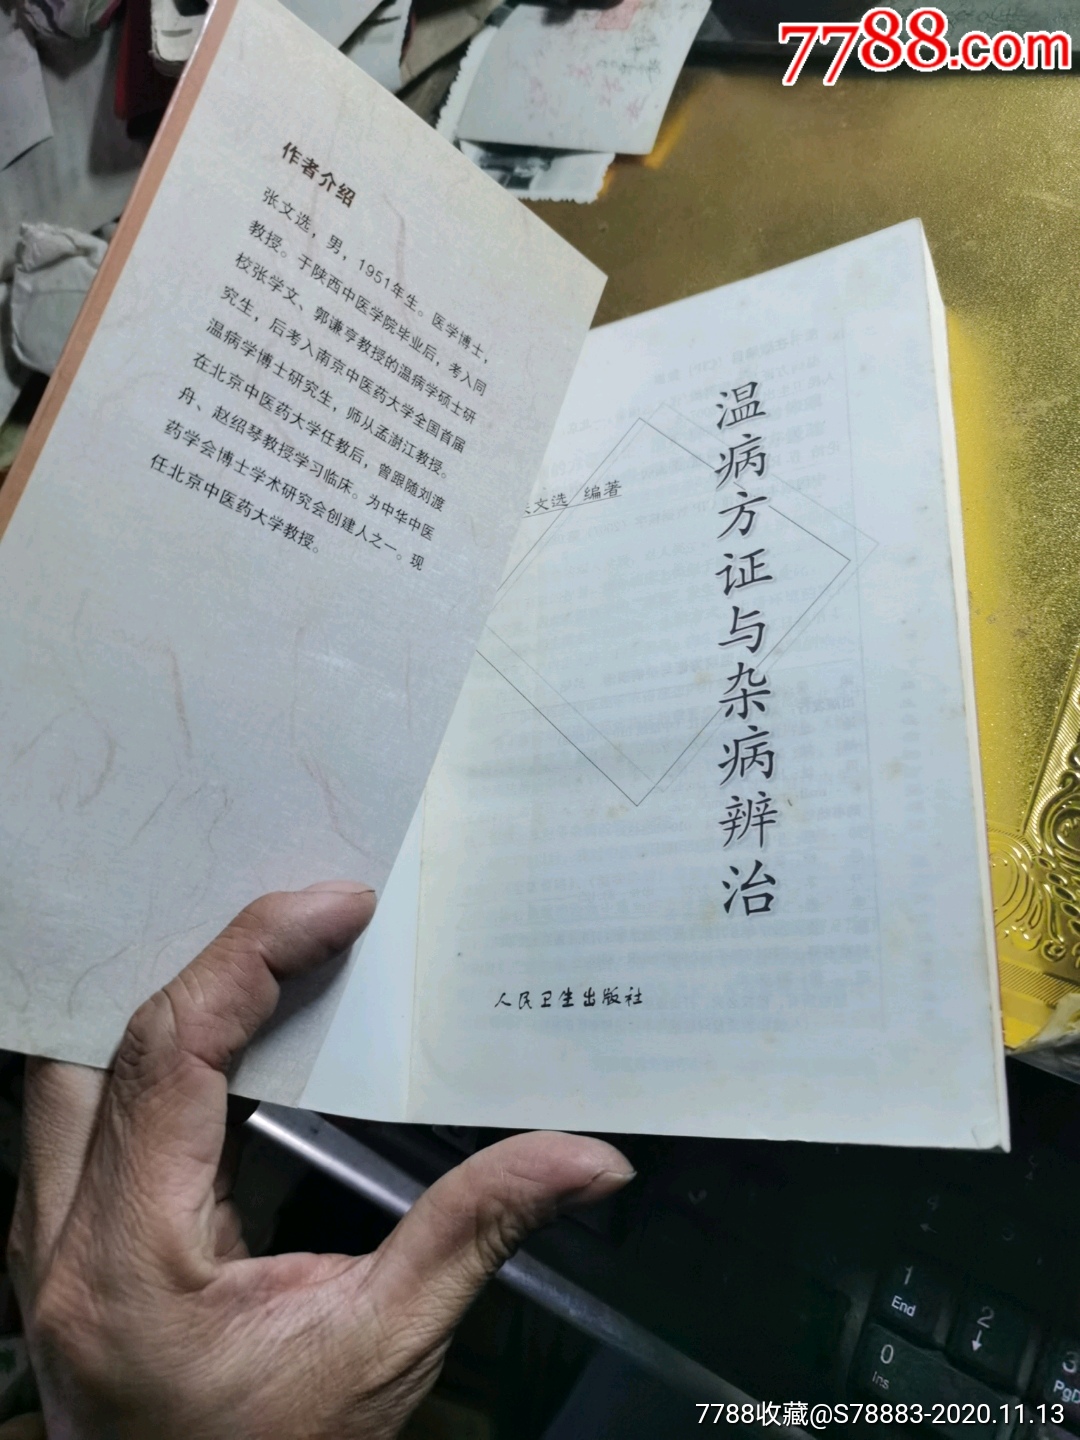 7788.com
作者介绍
张文选，男，1951年生。医学博士，
教授。于陕西中医学院毕业后，考入同
校张学文、郭谦亨教授的温病学硕士研
究生，后考入南京中医药大学全国首届
温病学博士研究生，师从孟澍江教授。
在北京中医药大学任教后，曾跟随刘渡
舟、赵绍琴教授学习临床。为中华中医
药学会博士学术研究会创建人之一。现
任北京中医药大学教授。
温病方证与杂病辨治
文选 编著
人民卫生出版社
4
1
End
2
3
PgD
0
Ins
7788收藏@S78883-2020.11.13